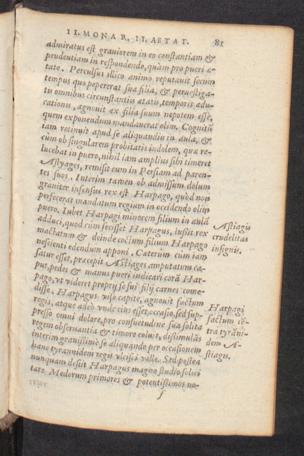 II. MONAR. II. AETAT. 81
admiratus est grauiorem in eo constantiam &
prudentiam in respondendo, quàm pro pueri æ-
tate. Perculsus illico animo reputauit secum
tempus quo pepererat sua filia, & peruestiga-
tu omnibus circumstantiis ætatis, temporis, edu-
cationis, agnouit ex filia suum nepotem esse,
quem exponendum mandauerat olim. Cognitũ
tam retinuit apud se aliquandiu in aula, &
cum ob singularem probitatis indolem, quæ re-
lucebat in puero, nihil iam amplius sibi timeret
Astyages, remisit eum in Persiam ad paren-
tes suos. Interim tamen ob admissum dolum
grauiter infensus rex est Harpago, quòd non
perfecerat mandatum regium in occidendo olim
puero. Iubet Harpagi minorem filium in aulã
adduci, quod cum fecisset Harpagus, iussit rex
mactatum & deinde coctum filium Harpago
nescienti edendum apponi. Cæterum cum iam
satur esset, præcepit Astiages amputatum ca-
put, pedes & manus pueri indicari corã Har-
pago, vt videret propriæ se sui filij carnes come-
disse. Harpagus visa capite, agnouit factum
regis, atque adeò vnde esset, occasio, sed sup-
presso omni dolore, pro consuetudine sua solita
regem obseruantia & timore coluit, dissimulãs
interim grauissimè se aliquando per occasionem
hanc tyrannidem regi vlcisci velle. Sed postea
nunquam desiit Harpagus magno studio solici-
tare Medorum primores & potentissimos no-
f
Astiagis
crudelitas
insignis.
Harpagi
factum cõ-
tra tyrãni-
dem A-
stiagis.